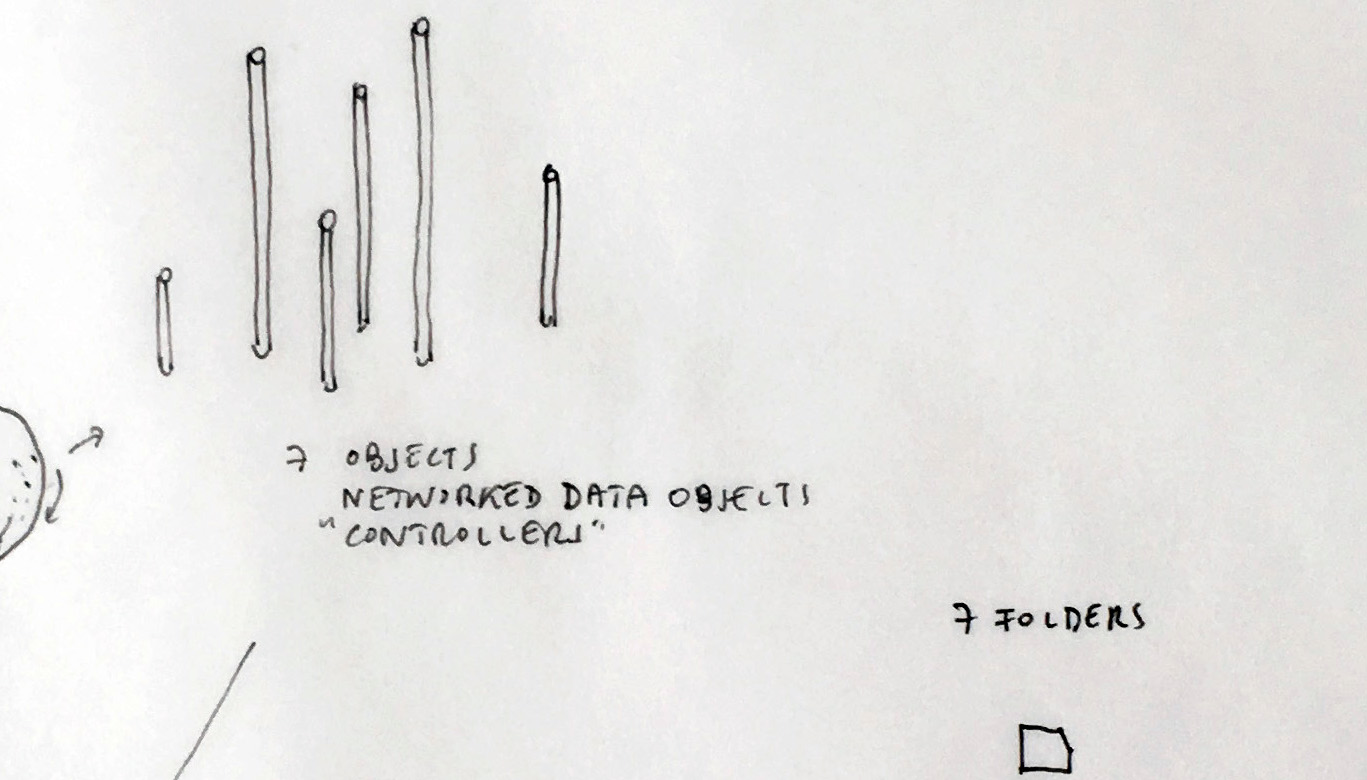 7 OBJECTS
NETWORKED DATA OBJECTS
"CONTROLLERS"
7 FOLDERS